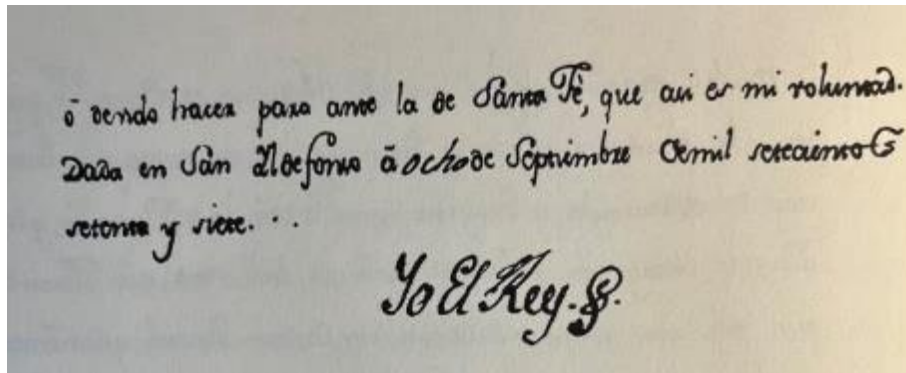 ō dendo hacer para ante la de Santa Fè, que asi es mi voluntad.
Dada en San Yldefonso ā ocho de Septiembre de mil setecientos
setenta y siete. . .
Yo El Rey.